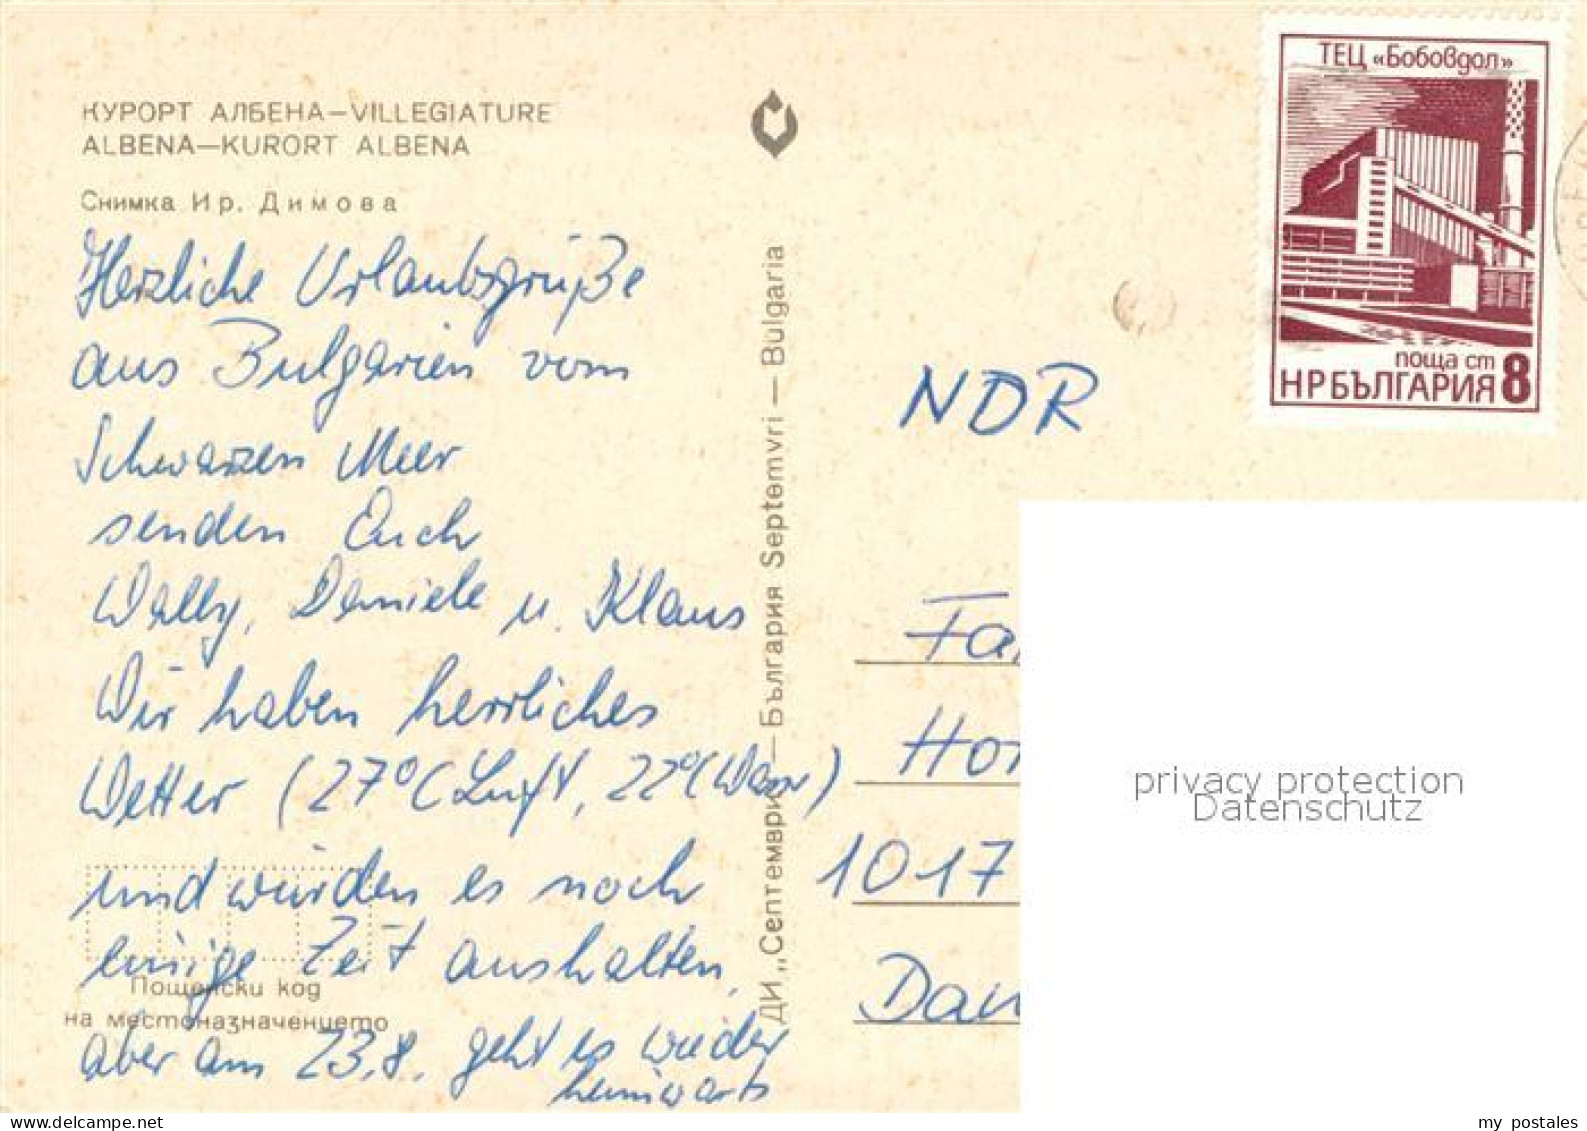 КУРОРТ АЛБЕНА—VILLEGIATURE
ALBENA—KURORT ALBENA
Снимка Ир. Димова
Herzliche Urlaubsgrüße
aus Bulgarien vom
Schwarzen Meer
senden Euch
Wally, Daniele u. Klaus
Wir haben herrliches
Wetter (27°C Luft, 22°C Wasser)
und würden es noch
einige Zeit aushalten,
aber am 23.8. geht es wieder
heimwärts
Пощенски код
на местоназначението
ДИ „Септември"—България Septemvri — Bulgaria
ТЕЦ «Бобовдол»
поща ст
НРБЪЛГАРИЯ 8
NDR
Fa
Hor
1017
Dan
privacy protection
Datenschutz
my postales